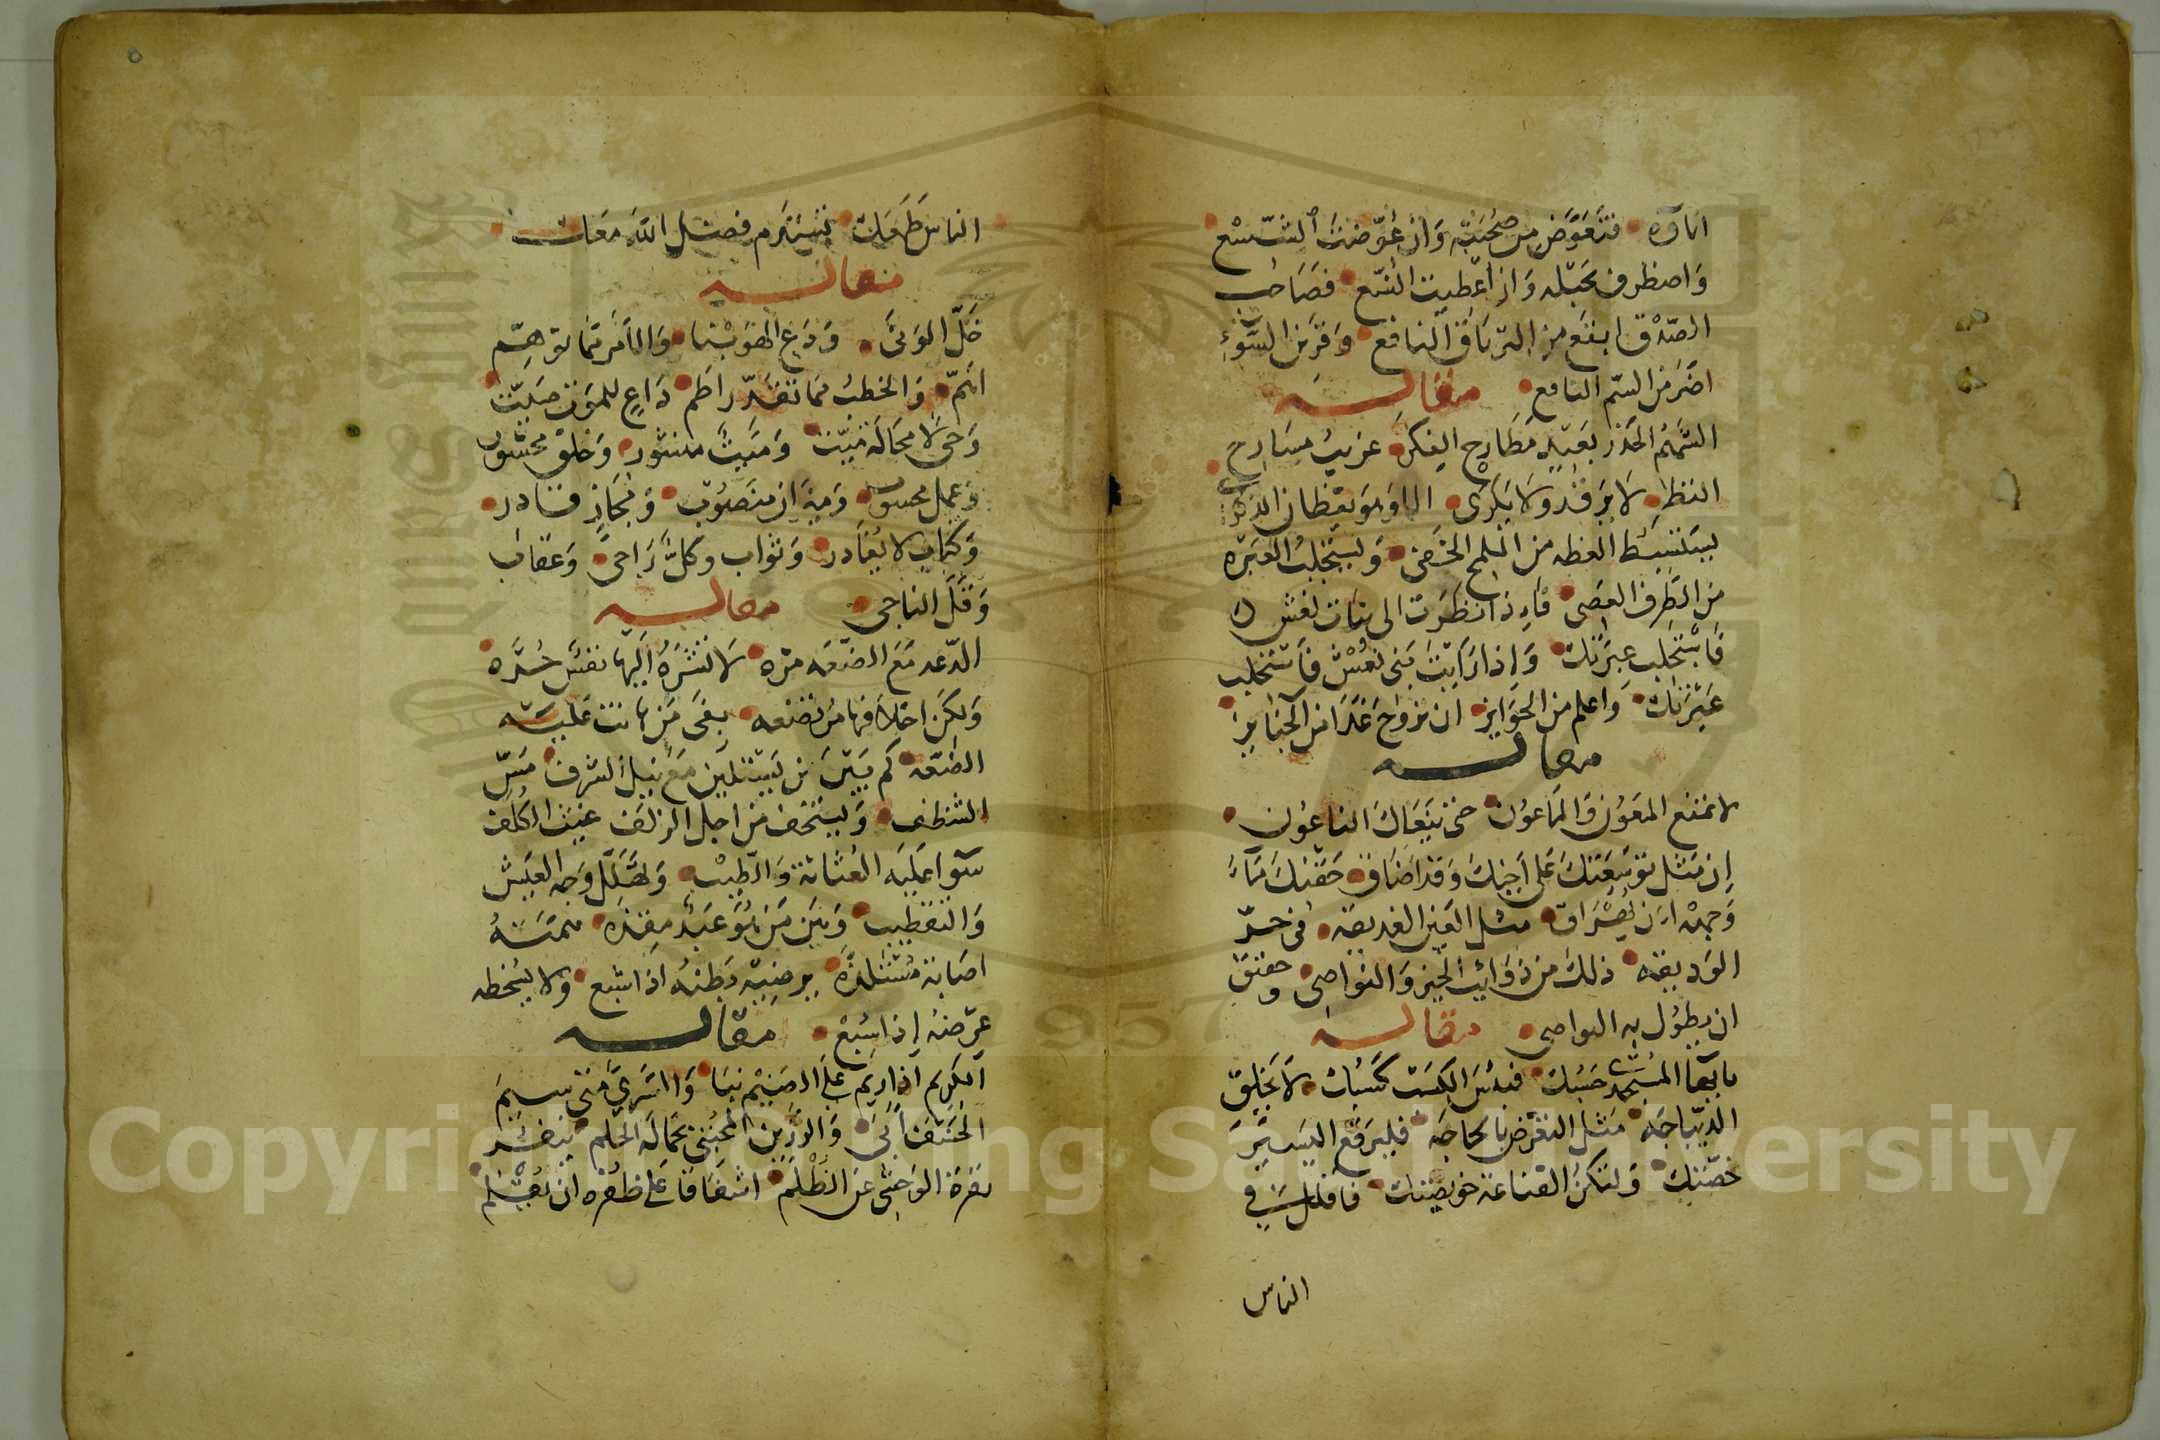 اناوه فتعوض من صحبته وان عوضت الشسع
واصطرف بحبله وان اعطيت النسع فصاحب
الصدق انفع من الترياق النافع وقرين السوء
اضر من السم الناقع مقالة
الشهم الحذر بعيد مطارح الفكر غريب مسارح
النظر لا يرقد ولا يكرى الا وهو يقظان الذكرى
يستنبط العظه من اللمح الخفى ويستجلب العبره
من الطرف القصى فاذا نظرت الى بنات نعش
فاستحلب عبرتك واذا رايت بنى نعش فاستجلب
عبرتك واعلم من الجوايز ان تروح غدا على الجنايز
مقالة
لا تمنع المعون والماعون حتى ينعاك الناعون
ان مثل توسعتك على اخيك وقد اضاق حقنك ماء
وجهه ان يراق مثل العين الغديقه فى حر
الوديقه ذلك من ذوائب الخير والنواصى وحقيق
ان يطول به التواصى مقالة
يابها المستجد حسبك فبئس الكسب كسبك لا تخلق
الديباجه مثل التعرض بالحاجه فليرقع اليسير
خصتك ولتكن القناعة خويصتك فاقلل في
الناس
الناس طمعك تستدم فضل الله معك
مقالة
خل الونى ودع الهوينا والامر مما توهم
اهم والخطب مما تقدر اطم داع للموت صيت
وحى لا محالة ميت وميت منشور وخلق محشور
وعمل محسوب وميزان منصوب ومجاز قادر
وكتاب لا يغادر وثواب وكل راجى وعقاب
وقل الناجى مقالة
الدعه مع الضعه مره لا تشره اليها نفس حره
ولكن اخلافها مرتضعه بفى من هانت عليه
الضعه كم بين من يستلين مع نيل الشرف مس
الشظف ويستخف من اجل الزلف عبء الكلف
سوا عليه الغثاثة والطيب وتهلل وجه العيش
والتقطيب وبين من هو عبد مقذه همته
اصابة مستلذه يرضيه بطنه اذا شبع ولا يسخطه
عرضه اذا سبع مقالة
الكريم اذا ريم على الضيم نبا والسرى متى سيم
الخسف ابى والرزين المحتبى بحمالة الحلم ينفر
نفرة الوحشى عن الظلم اشفاقا على ظفره ان يقلم